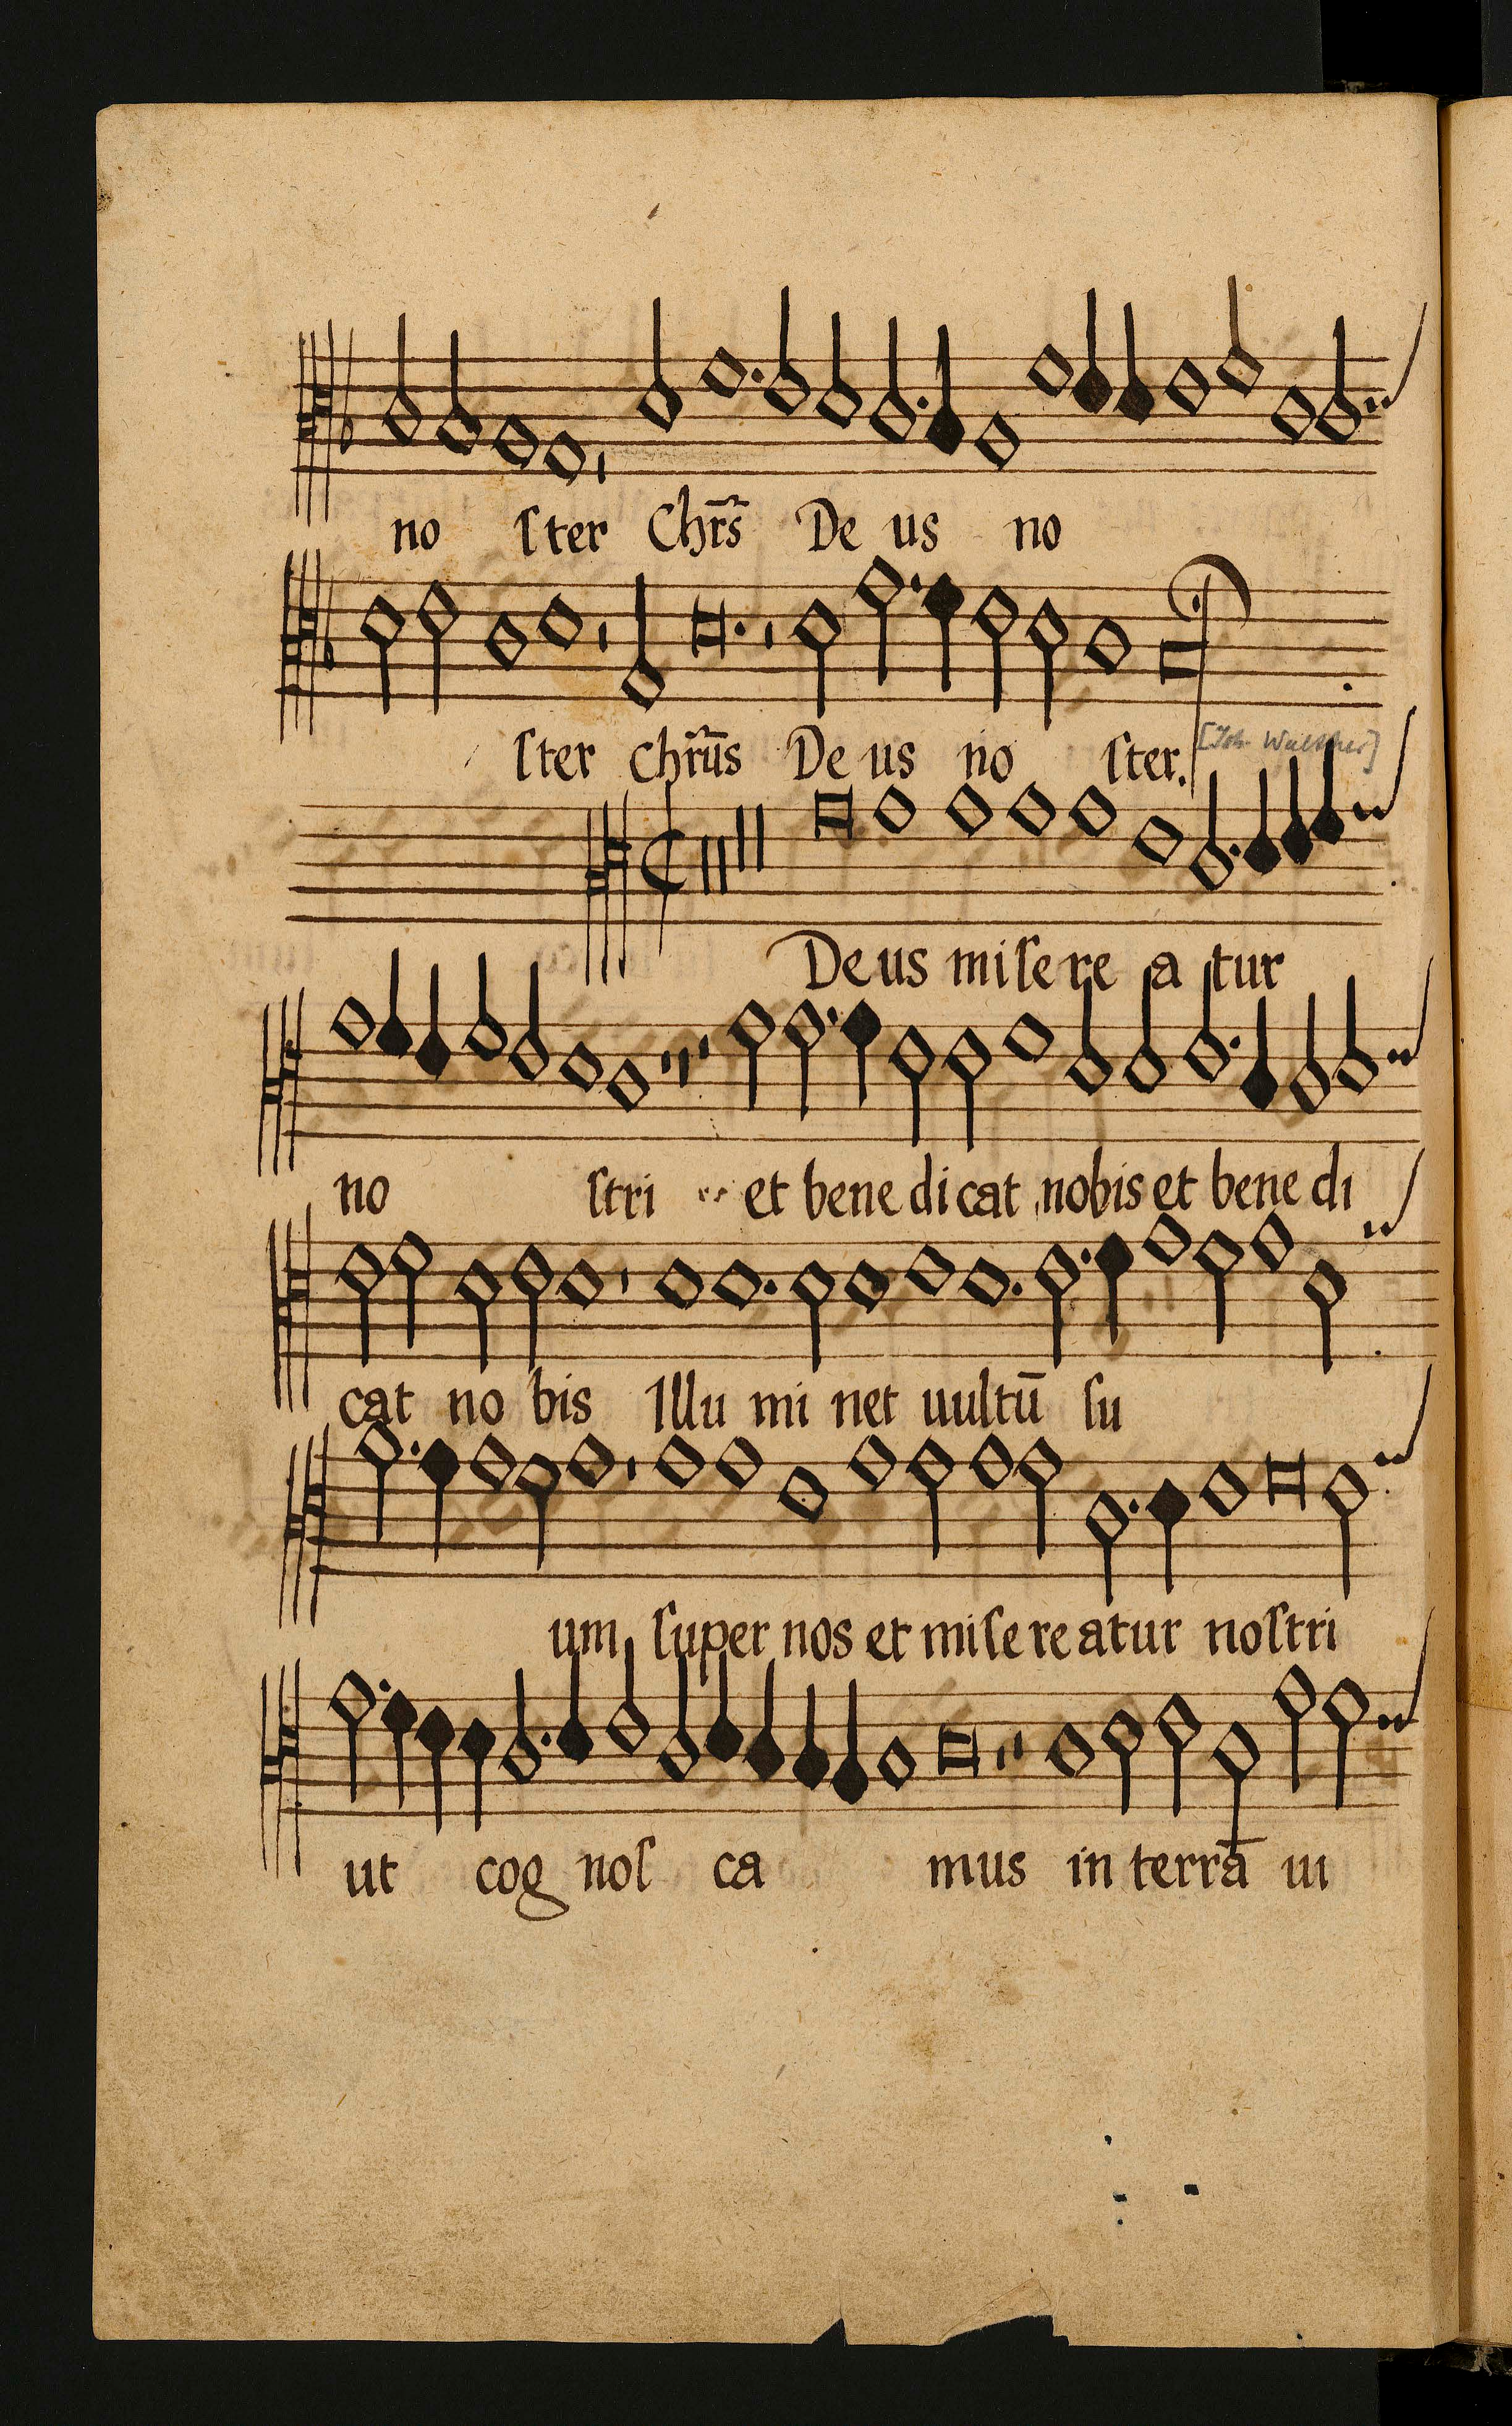 no ſter Chr̄s De us no
ſter chrūs De us no ſter.
[Joh. Walther]
Deus miſere a tur
no ſtri et bene dicat nobis et bene di
cat no bis Illu mi net uultū ſu
um ſuper nos et miſereatur noſtri
ut cog noſ ca mus in terrā ui